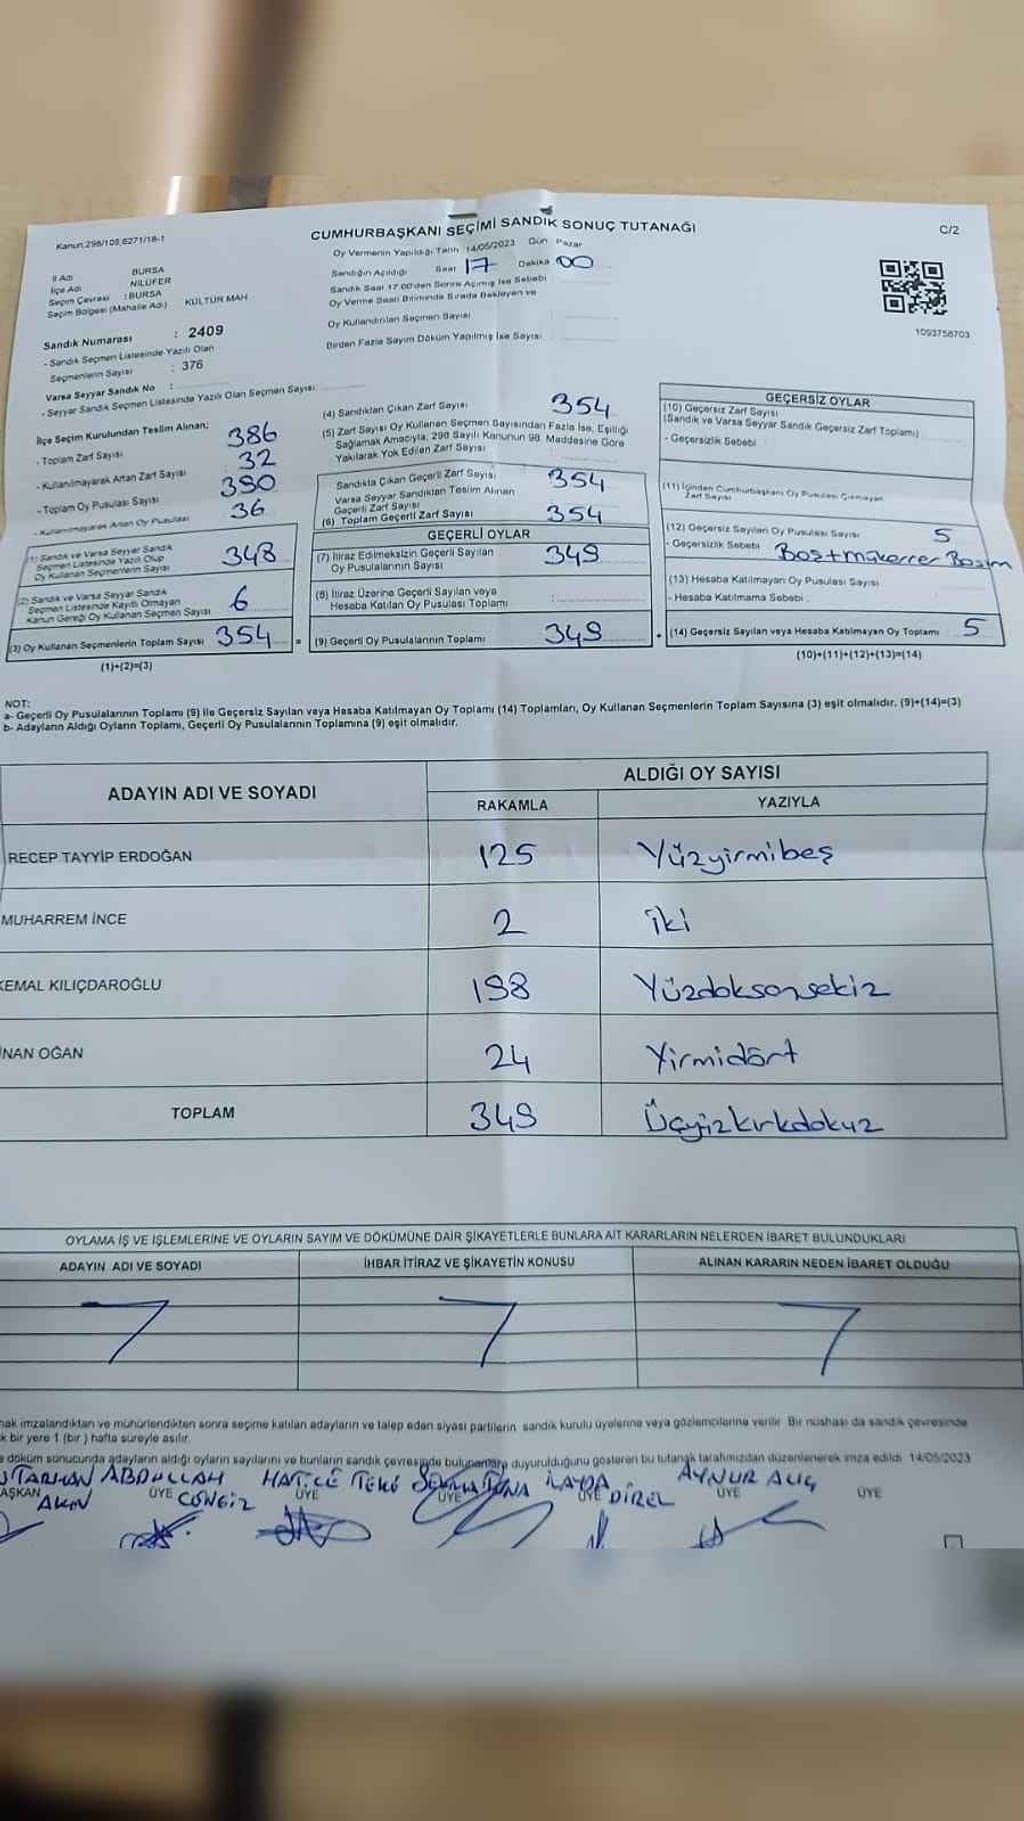 Kanun:298/105,6271/18-1
CUMHURBAŞKANI SEÇİMİ SANDIK SONUÇ TUTANAĞI
C/2
Oy Vermenin Yapıldığı Tarih 14/05/2023 Gün Pazar
İl Adı BURSA
İlçe Adı NİLÜFER
Seçim Çevresi : BURSA
Seçim Bölgesi (Mahalle Adı) KÜLTÜR MAH
Sandığın Açıldığı Saat 17 Dakika 00
Sandık Saat 17:00'den Sonra Açılmış İse Sebebi
Oy Verme Saati Bitiminde Sırada Bekleyen ve
Oy Kullandırılan Seçmen Sayısı
Birden Fazla Sayım Döküm Yapılmış İse Sayısı
1093758703
Sandık Numarası : 2409
- Sandık Seçmen Listesinde Yazılı Olan
Seçmenlerin Sayısı : 376
Varsa Seyyar Sandık No :
- Seyyar Sandık Seçmen Listesinde Yazılı Olan Seçmen Sayısı:
İlçe Seçim Kurulundan Teslim Alınan:
- Toplam Zarf Sayısı 386
- Kullanılmayarak Artan Zarf Sayısı 32
- Toplam Oy Pusulası Sayısı 390
- Kullanılmayarak Artan Oy Pusulası 36
(1) Sandık ve Varsa Seyyar Sandık
Seçmen Listesinde Yazılı Olup
Oy Kullanan Seçmenlerin Sayısı 348
(2) Sandık ve Varsa Seyyar Sandık
Seçmen Listesinde Kayıtlı Olmayan
Kanun Gereği Oy Kullanan Seçmen Sayısı 6
(3) Oy Kullanan Seçmenlerin Toplam Sayısı 354 =
(1)+(2)=(3)
(4) Sandıktan Çıkan Zarf Sayısı 354
(5) Zarf Sayısı Oy Kullanan Seçmen Sayısından Fazla İse, Eşitliği
Sağlamak Amacıyla, 298 Sayılı Kanunun 98. Maddesine Göre
Yakılarak Yok Edilen Zarf Sayısı
Sandıkta Çıkan Geçerli Zarf Sayısı 354
Varsa Seyyar Sandıktan Teslim Alınan
Geçerli Zarf Sayısı
(6) Toplam Geçerli Zarf Sayısı 354
GEÇERLİ OYLAR
(7) İtiraz Edilmeksizin Geçerli Sayılan
Oy Pusulalarının Sayısı 349
(8) İtiraz Üzerine Geçerli Sayılan veya
Hesaba Katılan Oy Pusulası Toplamı :
(9) Geçerli Oy Pusulalarının Toplamı 349 +
GEÇERSİZ OYLAR
(10) Geçersiz Zarf Sayısı
(Sandık ve Varsa Seyyar Sandık Geçersiz Zarf Toplamı)
- Geçersizlik Sebebi
(11) İçinden Cumhurbaşkanı Oy Pusulası Çıkmayan
Zarf Sayısı
(12) Geçersiz Sayılan Oy Pusulası Sayısı 5
- Geçersizlik Sebebi Boş+mükerrer Basım
(13) Hesaba Katılmayan Oy Pusulası Sayısı
- Hesaba Katılmama Sebebi :
(14) Geçersiz Sayılan veya Hesaba Katılmayan Oy Toplamı 5
(10)+(11)+(12)+(13)=(14)
NOT:
a- Geçerli Oy Pusulalarının Toplamı (9) ile Geçersiz Sayılan veya Hesaba Katılmayan Oy Toplamı (14) Toplamları, Oy Kullanan Seçmenlerin Toplam Sayısına (3) eşit olmalıdır. (9)+(14)=(3)
b- Adayların Aldığı Oyların Toplamı, Geçerli Oy Pusulalarının Toplamına (9) eşit olmalıdır.
ADAYIN ADI VE SOYADI
ALDIĞI OY SAYISI
RAKAMLA YAZIYLA
RECEP TAYYİP ERDOĞAN 125 Yüzyirmibeş
MUHARREM İNCE 2 iki
KEMAL KILIÇDAROĞLU 198 Yüzdoksansekiz
İNAN OĞAN 24 Yirmidört
TOPLAM 349 Üçyüzkırkdokuz
OYLAMA İŞ VE İŞLEMLERİNE VE OYLARIN SAYIM VE DÖKÜMÜNE DAİR ŞİKAYETLERLE BUNLARA AİT KARARLARIN NELERDEN İBARET BULUNDUKLARI
ADAYIN ADI VE SOYADI İHBAR İTİRAZ VE ŞİKAYETİN KONUSU ALINAN KARARIN NEDEN İBARET OLDUĞU
imzalandıktan ve mühürlendikten sonra seçime katılan adayların ve talep eden siyasi partilerin sandık kurulu üyelerine veya gözlemcilerine verilir. Bir nüshası da sandık çevresinde
bir yere 1 (bir) hafta süreyle asılır.
döküm sonucunda adayların aldığı oyların sayılarını ve bunların sandık çevresinde bulunanlara duyurulduğunu gösteren bu tutanak tarafımızdan düzenlenerek imza edildi. 14/05/2023
TARHAN ABDULLAH HATİCE TEKE TUNA İLAYDA AYNUR ALIÇ
AŞKAN AKIN ÜYE CENGİZ ÜYE ÜYE ÜYE DİREL ÜYE ÜYE